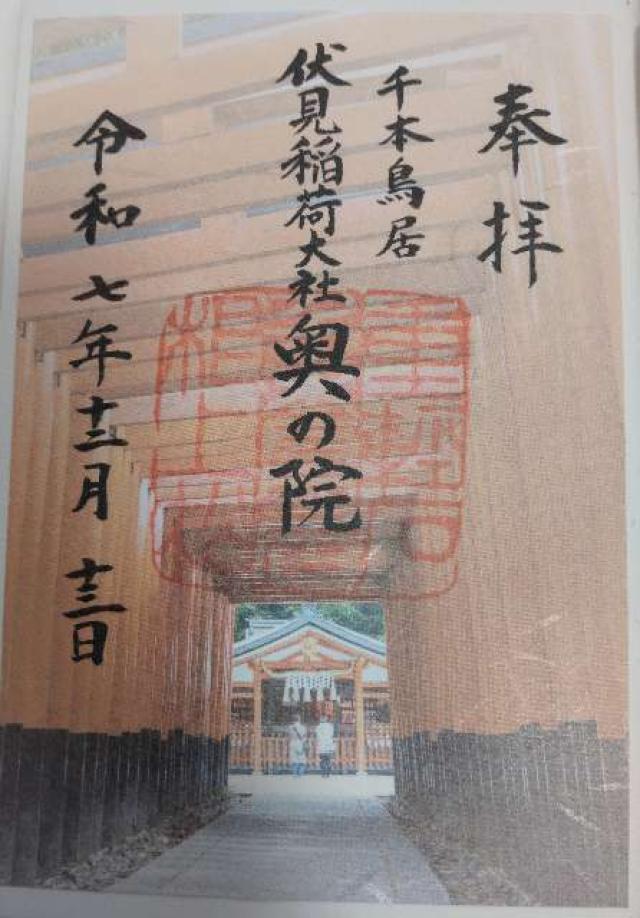 奉拝
千本鳥居
伏見稲荷大社奥の院
令和七年十二月十三日